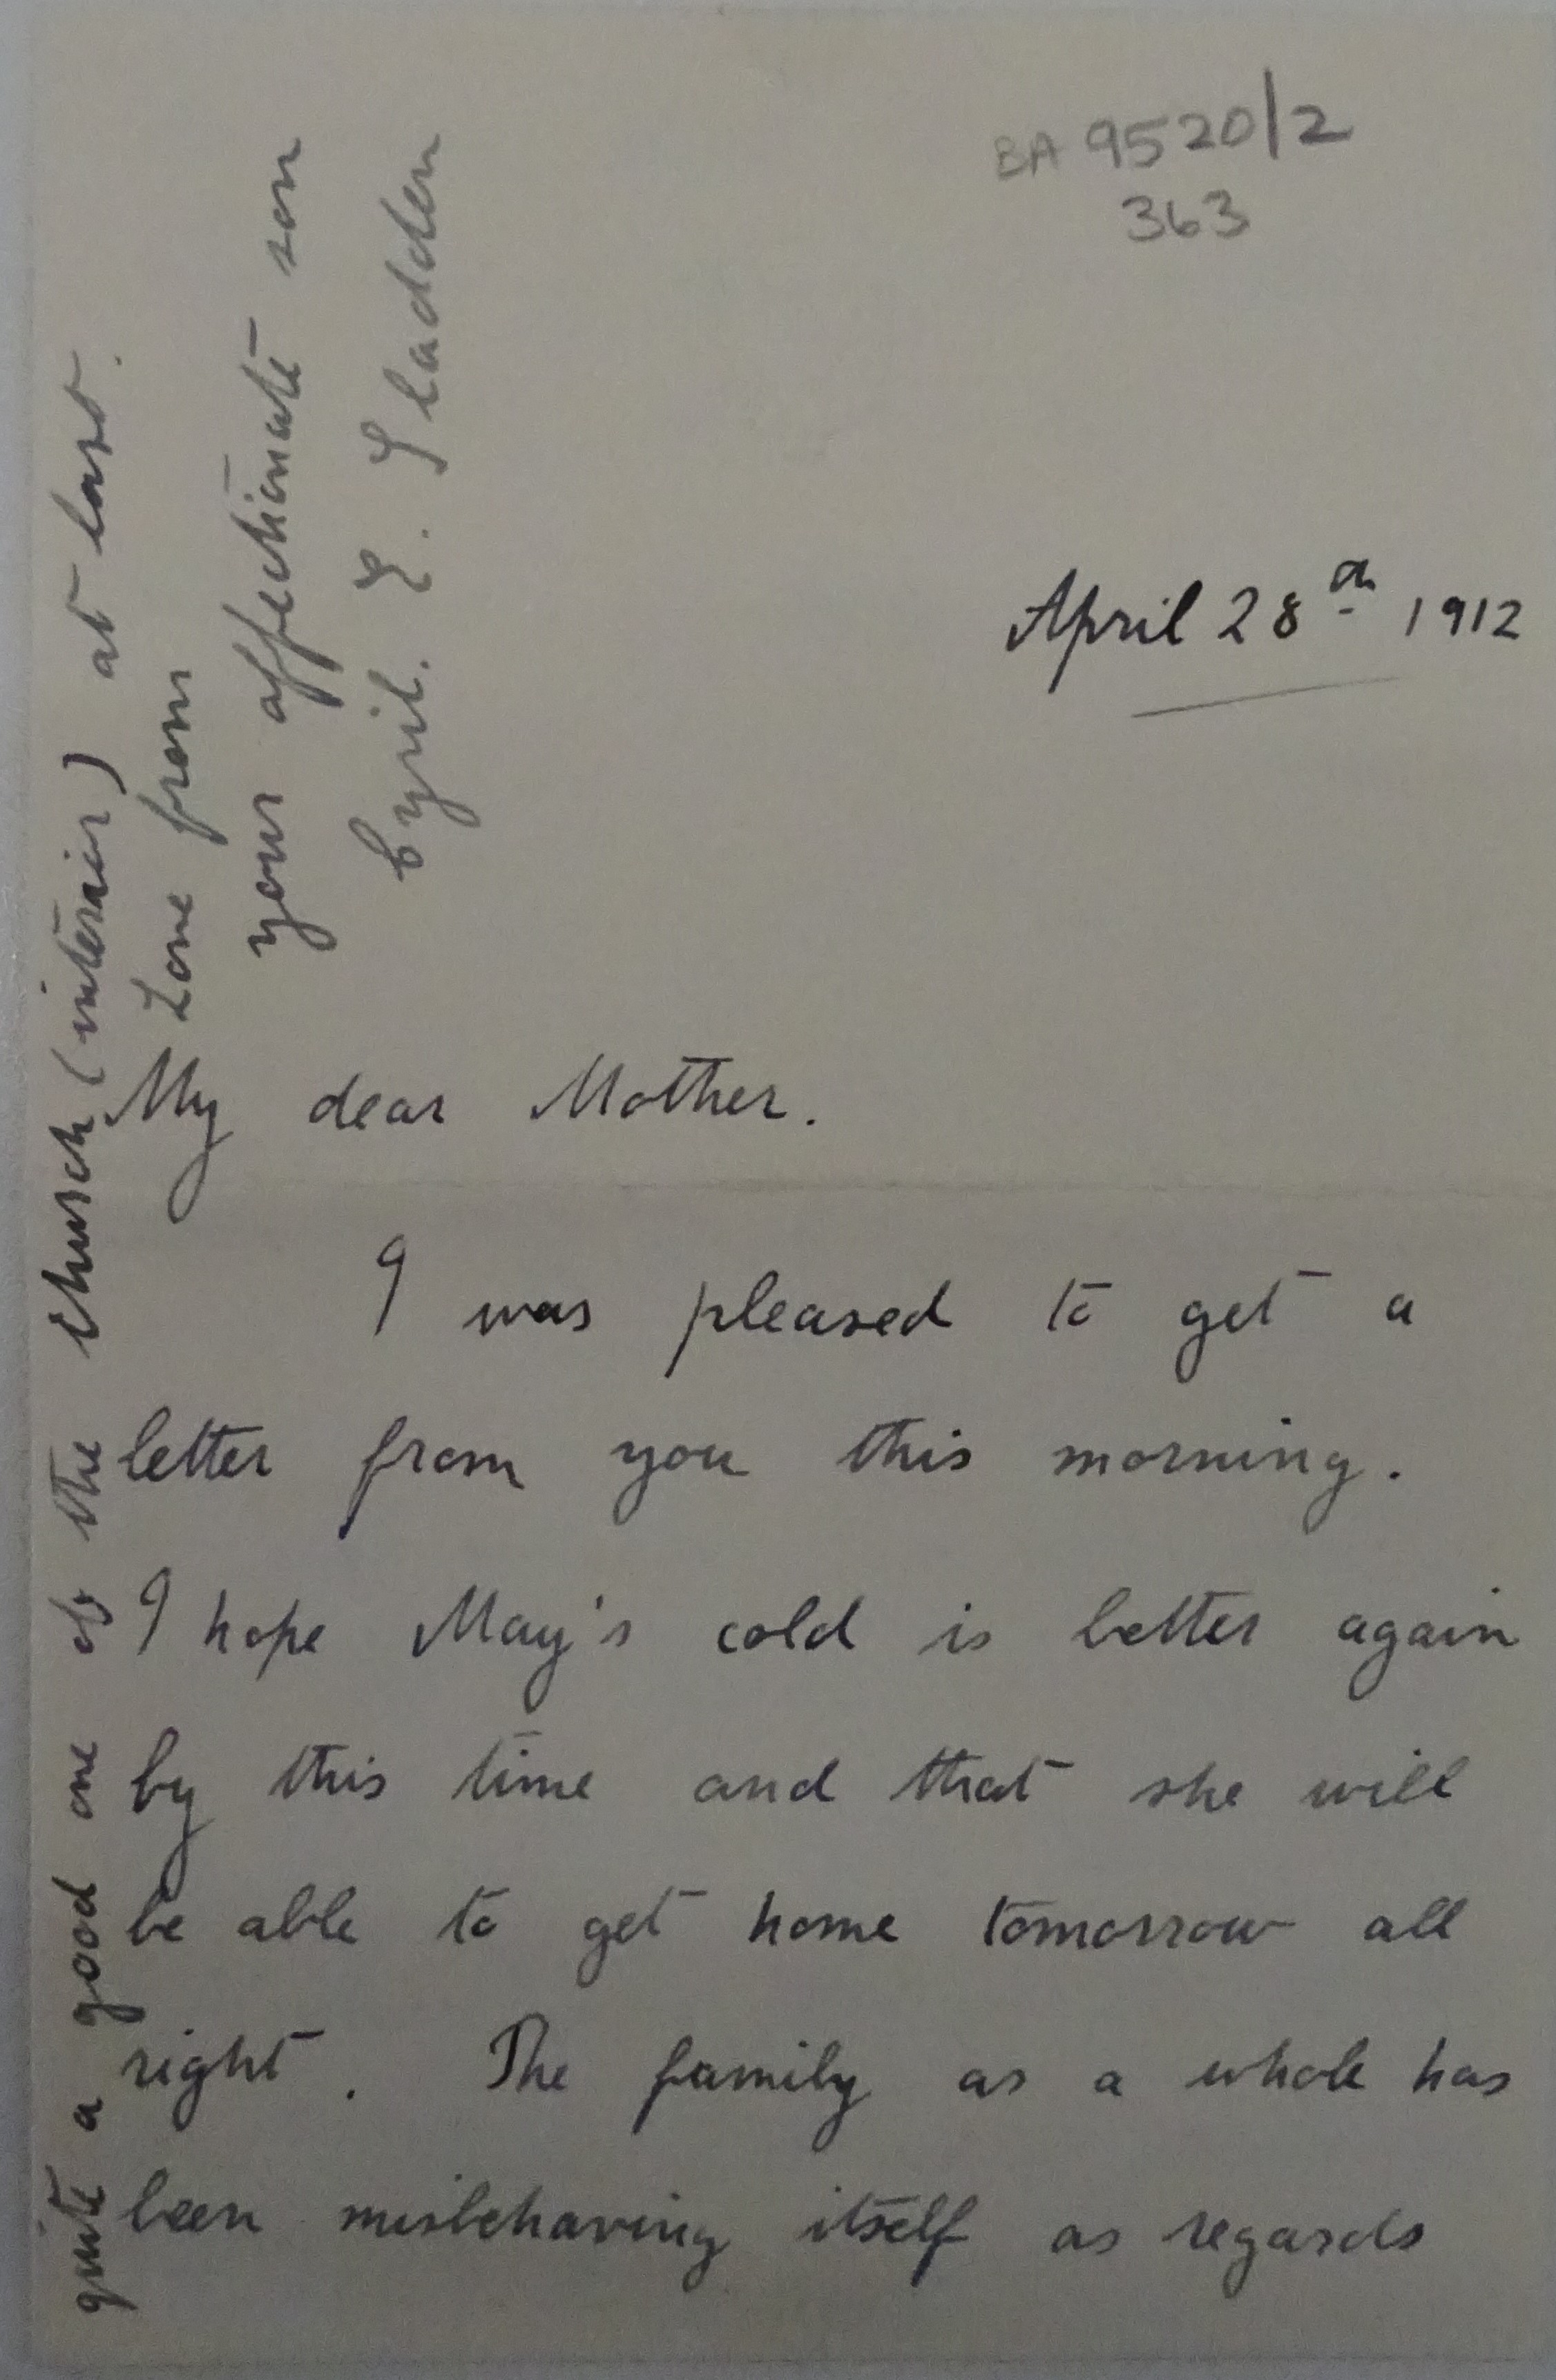 BA 9520/2
363
April 28th 1912
My dear Mother.
I was pleased to get a
letter from you this morning.
I hope May's cold is better again
by this time and that she will
be able to get home tomorrow all
right. The family as a whole has
been misbehaving itself as regards
quite a good one of the church (interior) at last.
Love from
your affectionate son
Cyril. E. Sladden